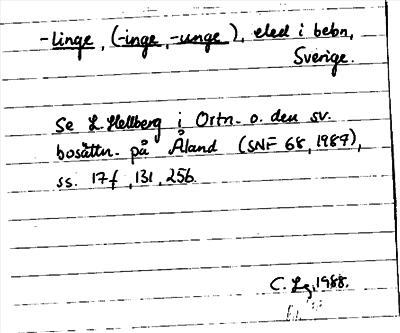 -linge, (-inge, -unge), eled i bebn,
Sverige.
Se L. Hellberg i Ortn. o. den sv.
bosättn. på Åland (SNF 68, 1987),
ss. 17f, 131, 256.
C. Lg, 1988.